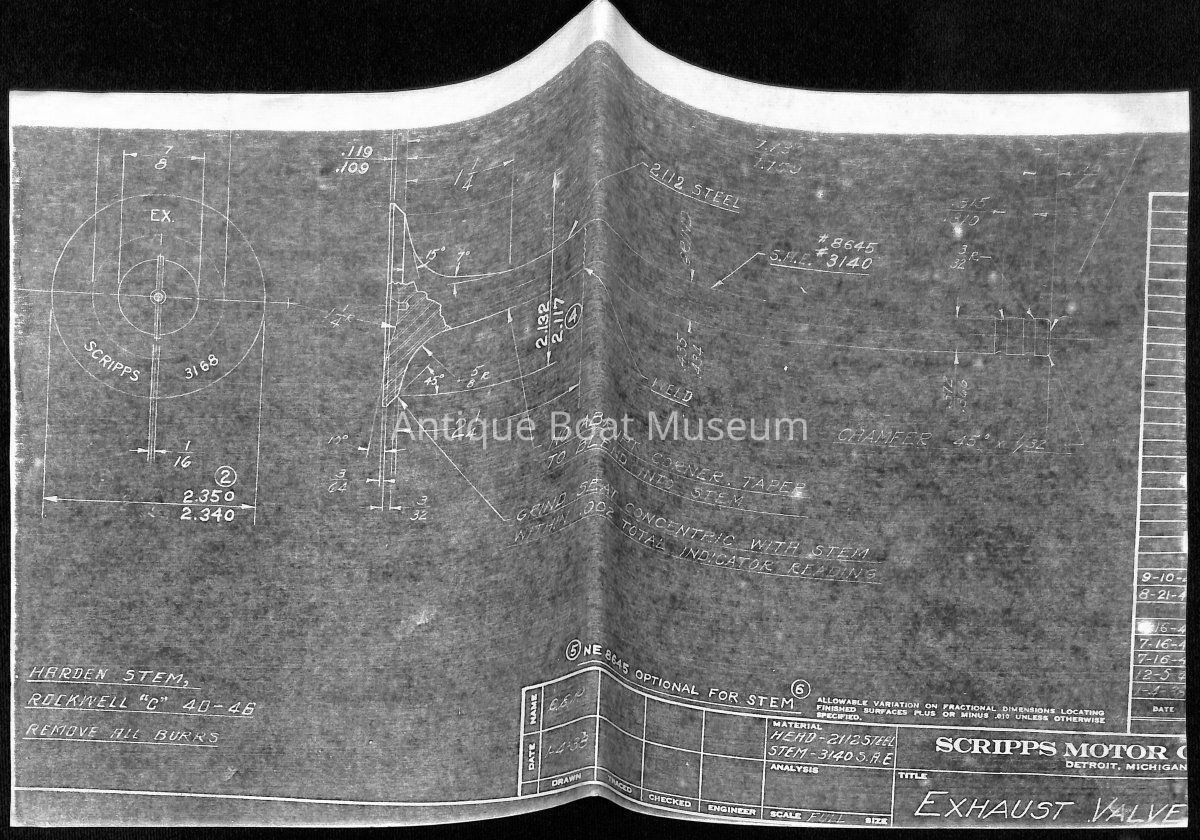 7/8
EX.
SCRIPPS 3168
1/16
②
2.350
2.340
.119
.109
1 1/4
15°
7°
45°
5/8 R
2.132
2.117
④
3/64
3/32
2112 STEEL
GRIND
#8645
S.A.E. #3140
WELD
.515
.510
3/32 R
CHAMFER 45° x 1/32
CORNER. TAPER
TO BLEND INTO STEM
GRIND SEAT CONCENTRIC WITH STEM
WITHIN .002 TOTAL INDICATOR READING
Antique Boat Museum
HARDEN STEM,
ROCKWELL "C" 40-46
REMOVE ALL BURRS
⑤ NE 8645 OPTIONAL FOR STEM ⑥
ALLOWABLE VARIATION ON FRACTIONAL DIMENSIONS LOCATING
FINISHED SURFACES PLUS OR MINUS .010 UNLESS OTHERWISE
SPECIFIED.
9-10-
8-21-4
16-4
7-16-4
7-16-4
12-5
DATE
NAME
DATE
DRAWN
TRACED
CHECKED
ENGINEER
MATERIAL
HEAD-2112 STEEL
STEM-3140 S.A.E
ANALYSIS
SCALE FULL SIZE
SCRIPPS MOTOR C
DETROIT, MICHIGAN
TITLE
EXHAUST VALVE